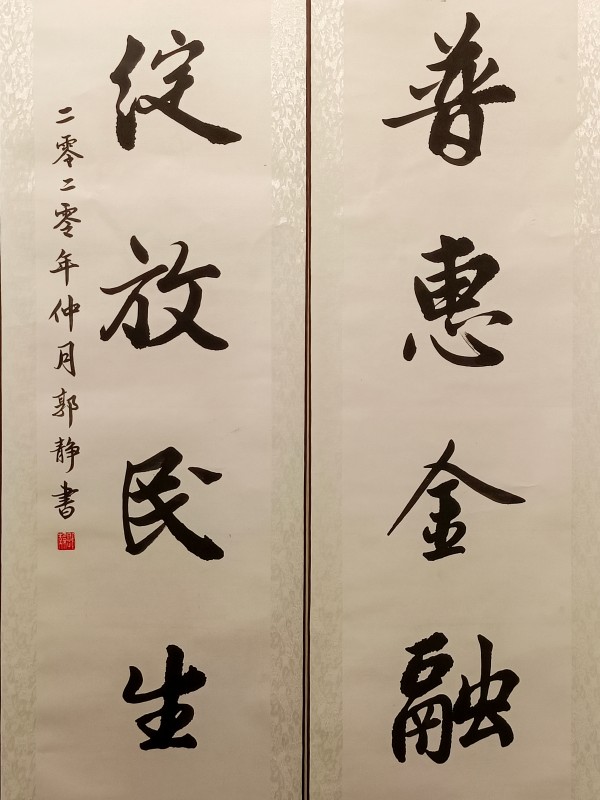 普惠金融
绽放民生
二零二零年仲月郭静书